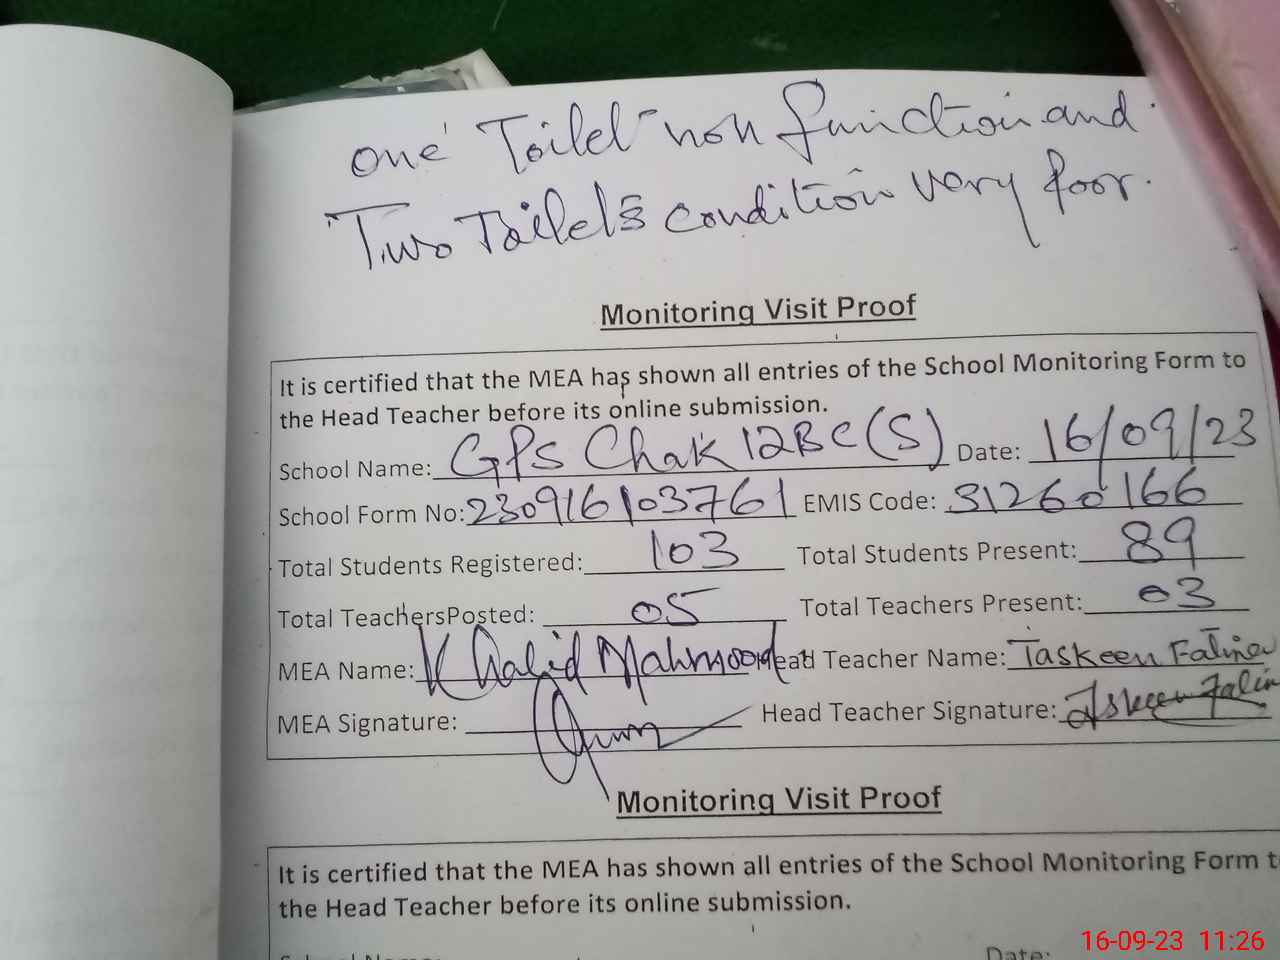 one Toilet non function and
Two Toilets condition very poor.
Monitoring Visit Proof
It is certified that the MEA has shown all entries of the School Monitoring Form to
the Head Teacher before its online submission.
School Name: GPS Chak 12BC(S) Date: 16/09/23
School Form No: 230916103761 EMIS Code: 31260166
Total Students Registered: 103 Total Students Present: 89
Total TeachersPosted: 05 Total Teachers Present: 03
MEA Name: Khalid Mahmood Head Teacher Name: Taskeen Fatima
MEA Signature: Head Teacher Signature: Taskeen Fatim
Monitoring Visit Proof
It is certified that the MEA has shown all entries of the School Monitoring Form t
the Head Teacher before its online submission.
Date:
16-09-23 11:26